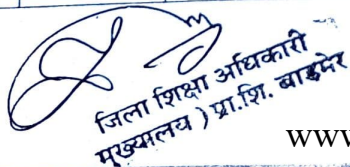 जिला शिक्षा अधिकारी
मुख्यालय ) प्रा.शि. बाड़मेर
www